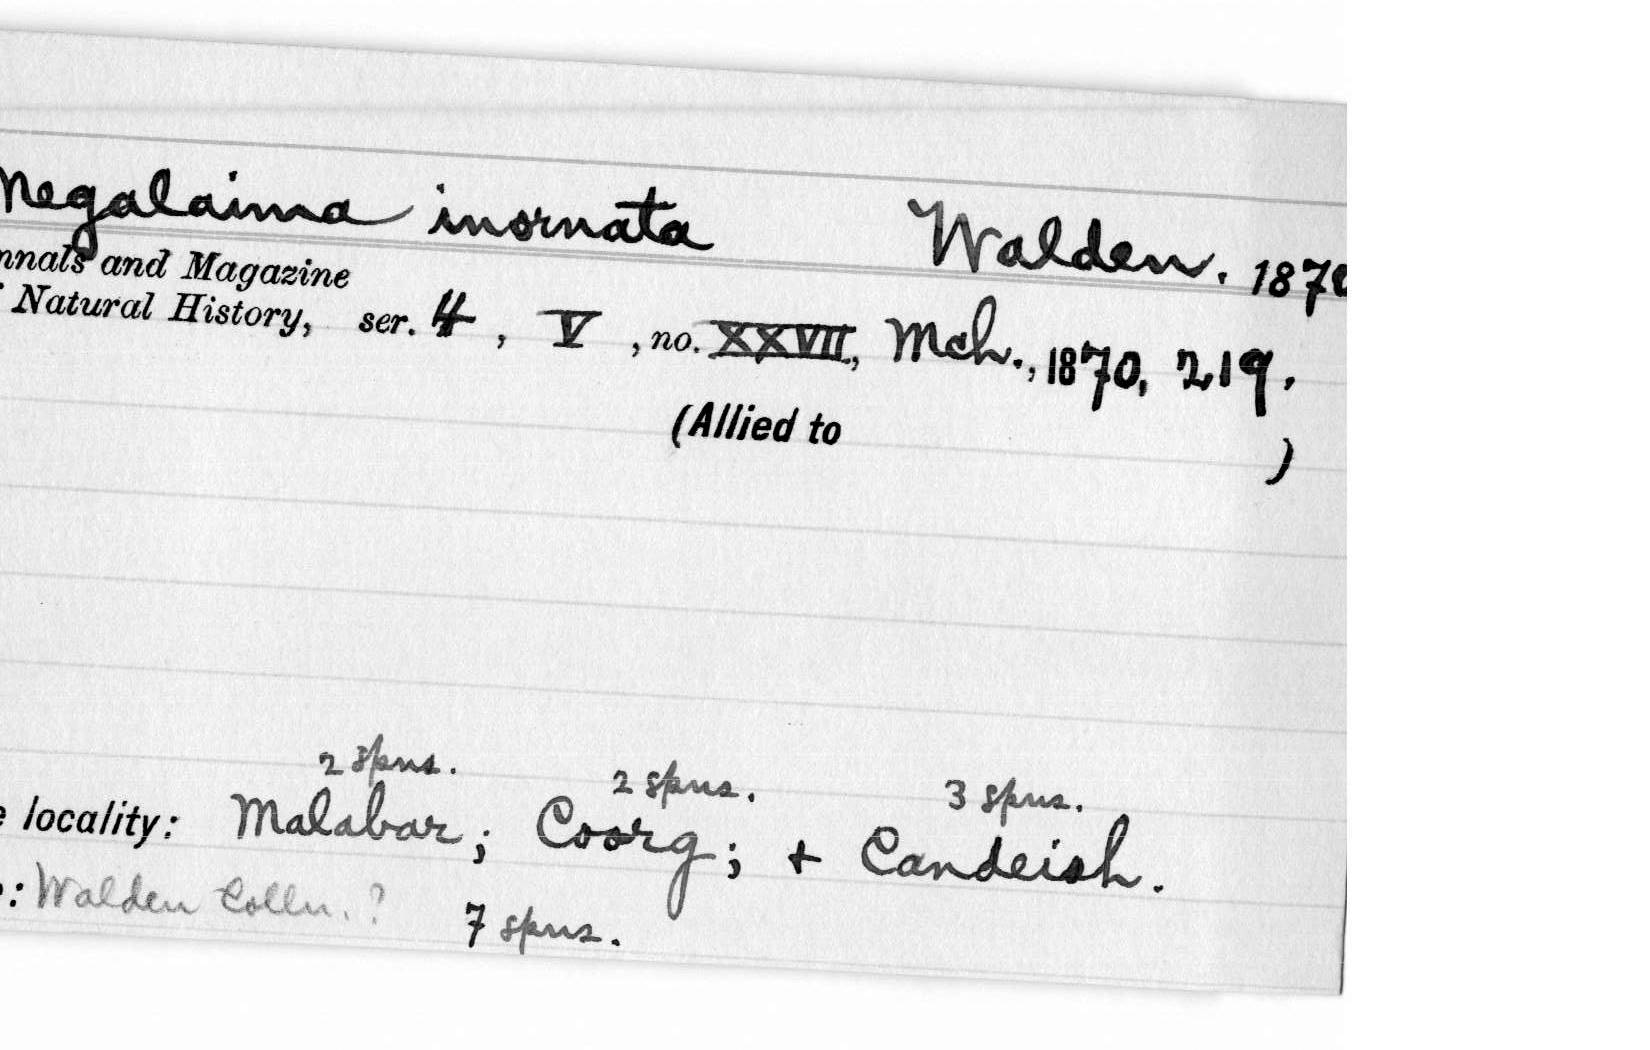 Megalaima inornata Walden. 1870
nnals and Magazine
Natural History, ser. 4, V, no. XXVII, Mch., 1870, 219.
(Allied to )
2 spns. 2 spns. 3 spns.
e locality: Malabar; Coorg; + Candeish.
: Walden Colln. ? 7 spns.